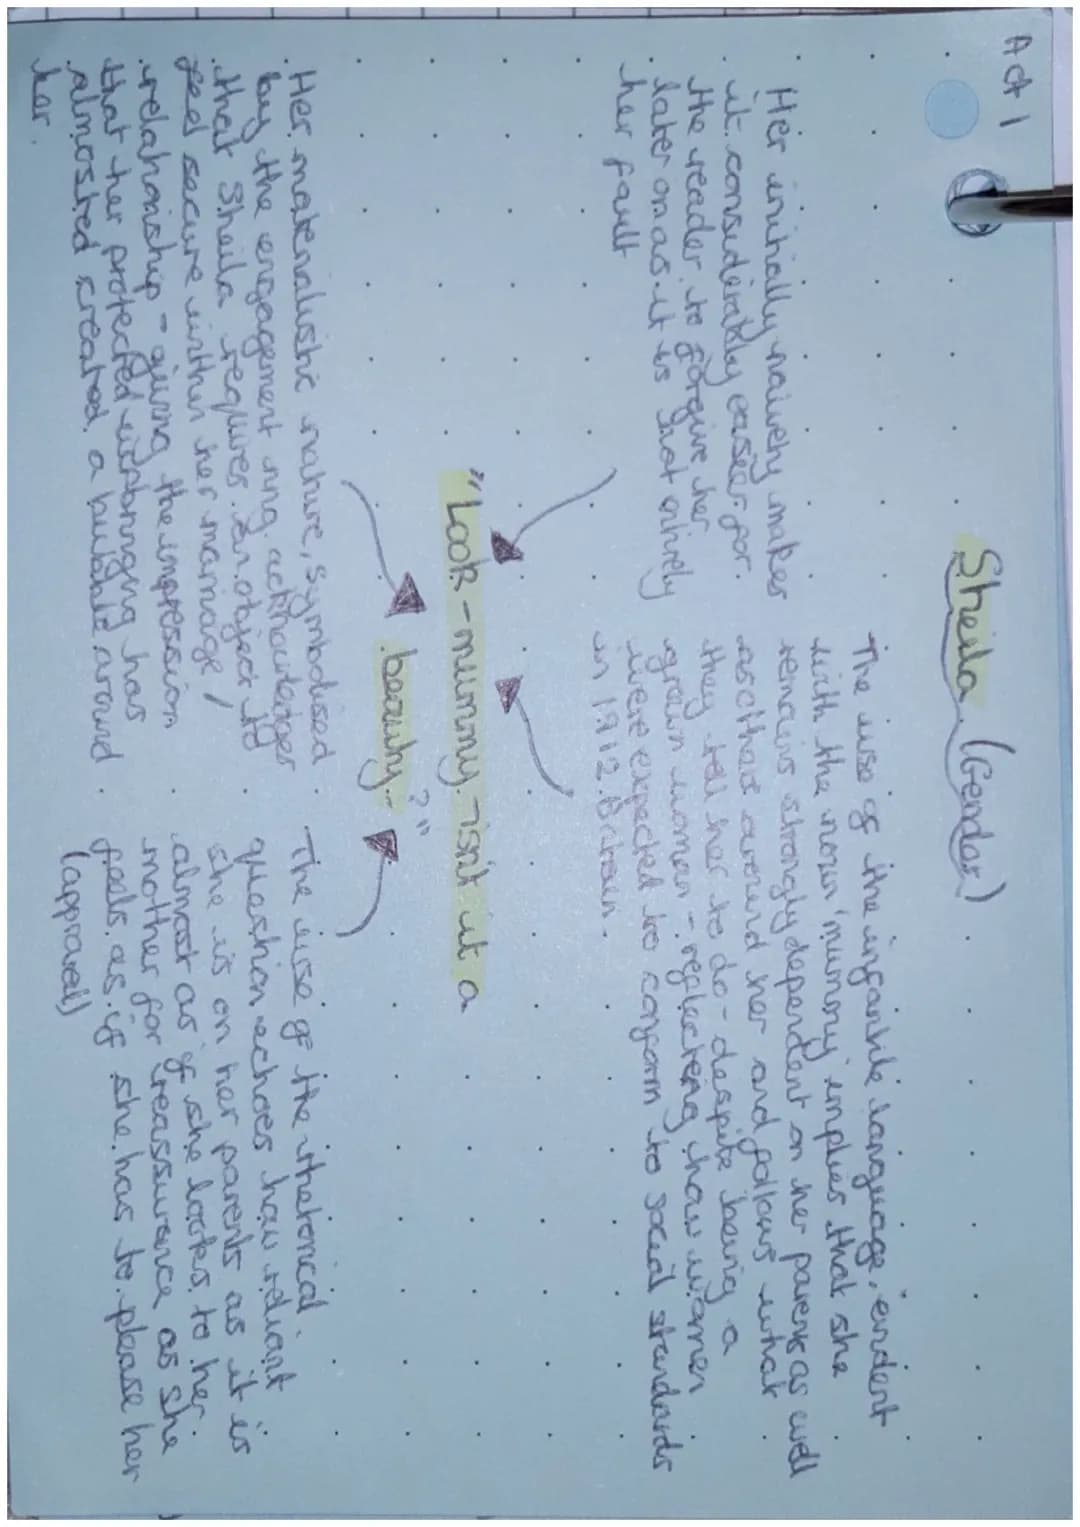 Act 1
Sheila (Gender)
Her initially naively makes
it considerably easier for
the reader to forgive her
later on as it is not entirely
her fault
The use of the infantile language, evident
with the noun 'mummy' implies that she
remains strongly dependent on her parents as well
as others around her and follows what
they tell her to do - despite being a
grown woman - reflecting how women
were expected to conform to social standards
in 1912 Britain.
"Look - mummy - isn't it a
beauty..?"
Her materialistic nature, symbolised
by the engagement ring acknowledges
that Sheila requires an object to
feel secure within her marriage /
relationship - giving the impression
that her protected upbringing has
almosted created a bubble around
her.
The use of the rhetorical
question echoes how reliant
she is on her parents as it is
almost as if she looks to her
mother for reassurance as she
feels as if she has to please her
(approval)